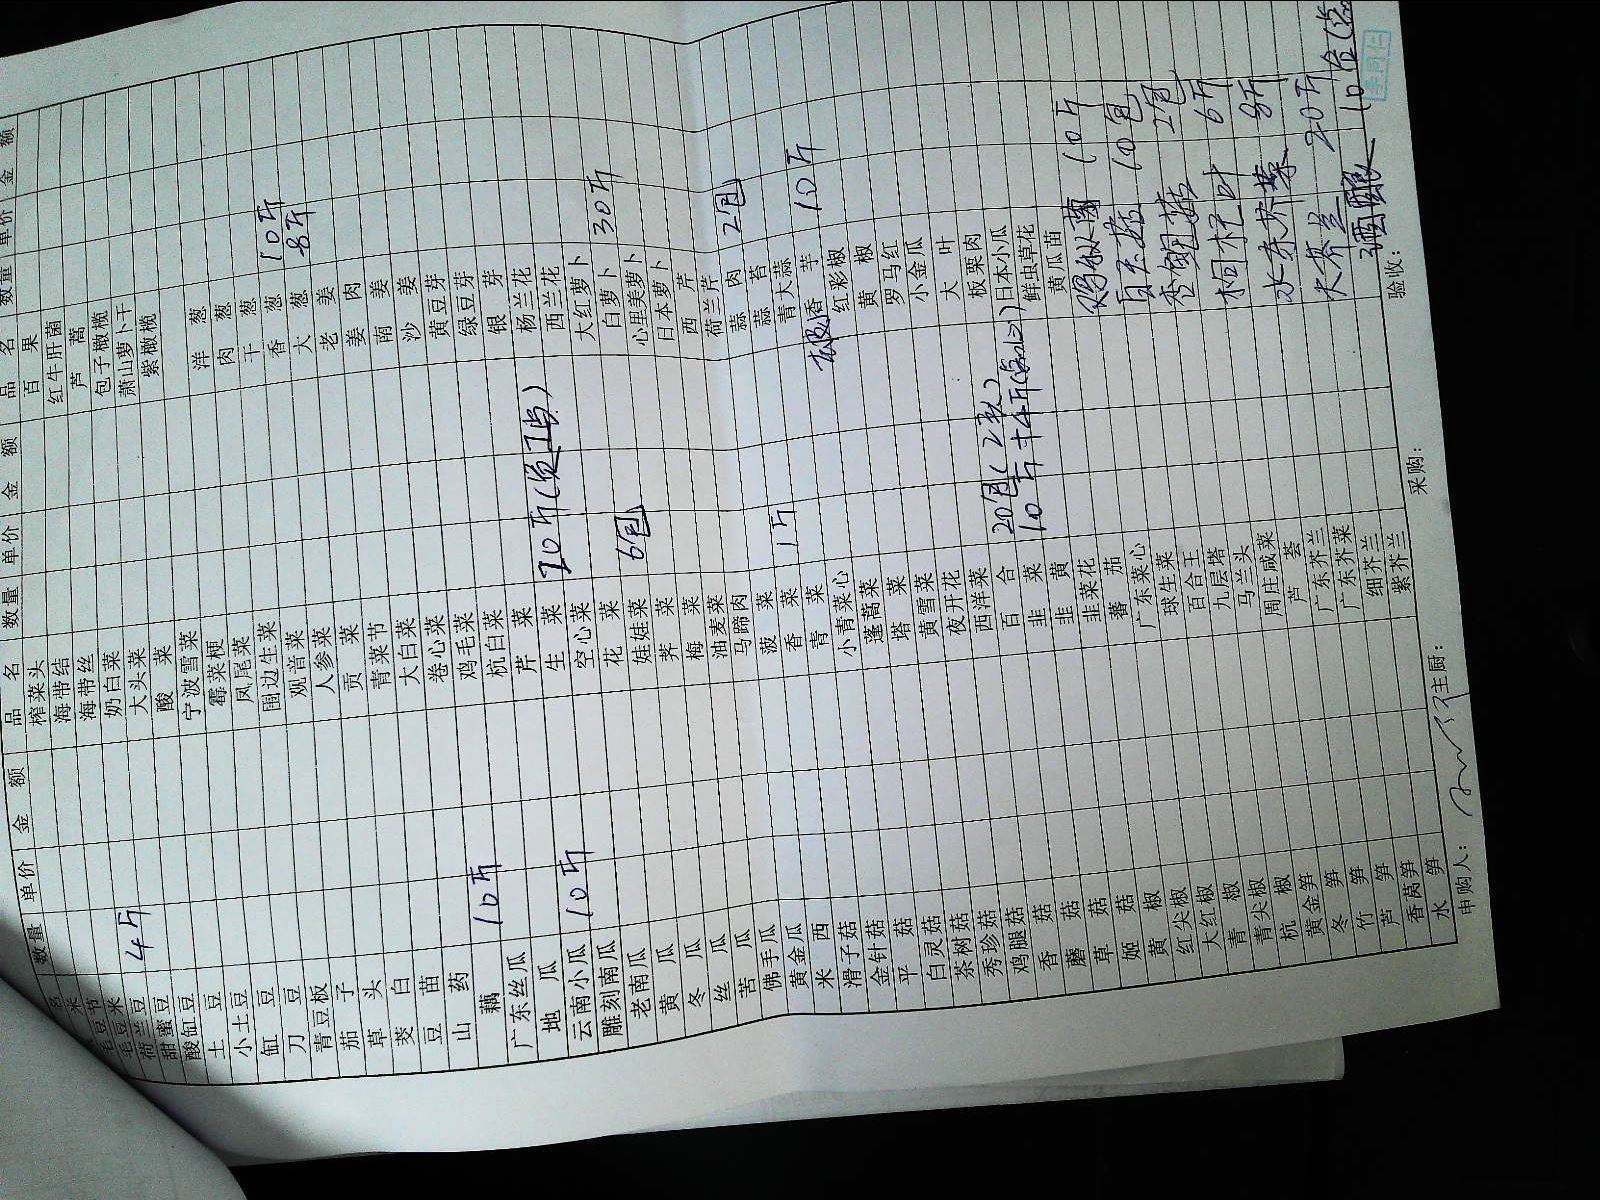 数量 单价 金额
毛豆节
毛豆米
荷兰豆 4斤
甜蜜豆
酸缸豆
土豆
小土豆
缸豆
刀豆
青豆板
茄子
草头
茭白
豆苗
山药
藕 10斤
广东丝瓜
地瓜
云南小瓜 10斤
雕刻南瓜
老南瓜
黄瓜
冬瓜
丝瓜
苦瓜
佛手瓜
黄金瓜
米西
滑子菇
金针菇
平菇
白灵菇
茶树菇
秀珍菇
鸡腿菇
香菇
蘑菇
草菇
姬菇
黄椒
红尖椒
大红椒
青椒
青尖椒
杭椒
黄金笋
冬笋
竹笋
芦笋
香莴笋
水笋
品名 数量 单价 金额
榨菜头
海带结
海带丝
奶白菜
大头菜
酸菜
宁波雪菜
霉菜梗
凤尾菜
围边生菜
观音菜
人参菜
贡菜
青菜节
大白菜
卷心菜
鸡毛菜
杭白菜
芹菜
生菜 20斤
空心菜
花菜
娃娃菜 6包
荠菜
梅菜
油麦菜
马蹄肉
菠菜
香菜 1斤
青菜
小青菜心
蓬蒿菜
塔菜
黄雪菜
夜开花
西洋菜
百合 20包(2次)
韭菜 10斤+4斤
韭黄
韭菜花
蕃茄
广东菜心
球生菜
百合王
九层塔
马兰头
周庄咸菜
芦荟
广东芥兰
广东芥菜
细芥兰
紫芥兰
品名 数量 单价 金额
百果
红牛肝菌
芦蒿
包子橄榄
萧山萝卜干
紫橄榄
洋葱
肉葱
干葱
香葱 10斤
大葱 8斤
老姜
姜肉
南姜
沙姜
黄豆芽
绿豆芽
银芽
杨兰花
西兰花
大红萝卜
白萝卜 30斤
心里美萝卜
日本萝卜
西芹
荷兰芹
蒜肉 2包
蒜苔
青大蒜
香芋 10斤
红彩椒
黄椒
罗马红
小金瓜
大叶
板栗肉
日本小瓜
鲜虫草花
黄瓜苗
鸡纵菌 10斤
白玉菇 10包
杏鲍菇 2包
枸杞叶 6斤
水东芥菜 8斤
大芥兰 20斤
申购人: 主厨: 采购: 验收: